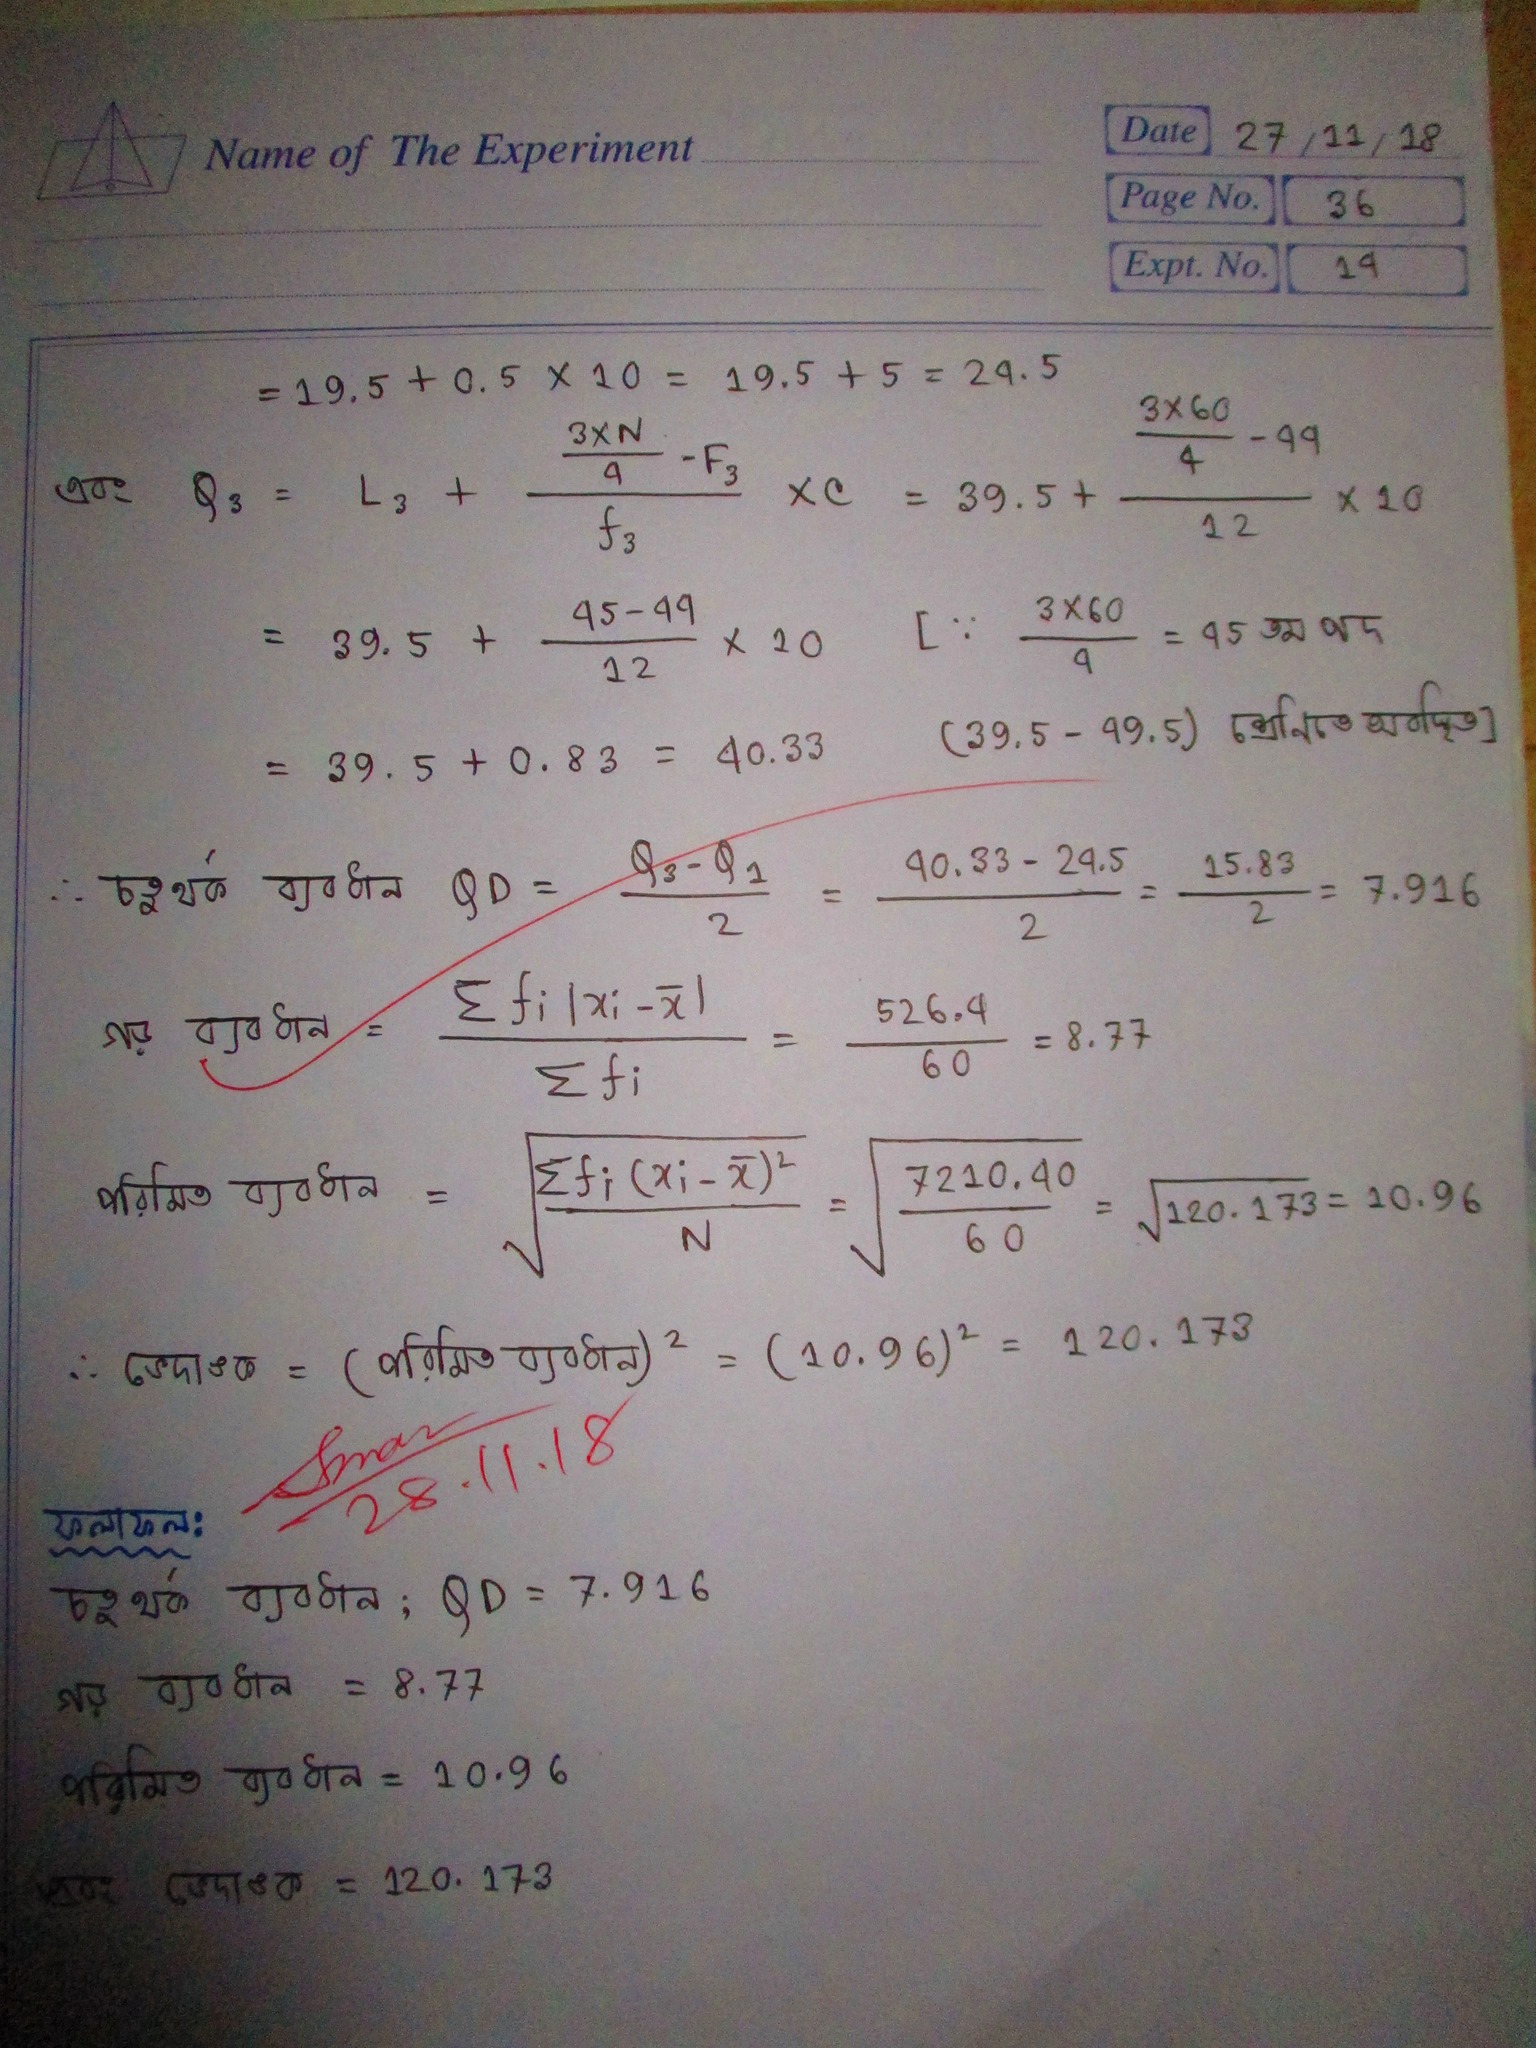 Name of The Experiment
Date 27/11/18
Page No. 36
Expt. No. 14
= 19.5 + 0.5 × 10 = 19.5 + 5 = 24.5
এবং Q₃ = L₃ + ((3×N)/4 - F₃)/f₃ × C = 39.5 + ((3×60)/4 - 44)/12 × 10
= 39.5 + (45-44)/12 × 10 [∵ (3×60)/4 = 45 তম পদ
= 39.5 + 0.83 = 40.33 (39.5 - 49.5) শ্রেনিতে অবস্থিত]
∴ চতুর্থক ব্যবধান QD = (Q₃-Q₁)/2 = (40.33 - 24.5)/2 = 15.83/2 = 7.916
গড় ব্যবধান = Σfi|xi - x̄|/Σfi = 526.4/60 = 8.77
পরিমিত ব্যবধান = √(Σfi(xi - x̄)²/N) = √(7210.40/60) = √120.173 = 10.96
∴ ভেদাঙক = (পরিমিত ব্যবধান)² = (10.96)² = 120.173
28.11.18
ফলাফল:
চতুর্থক ব্যবধান; QD = 7.916
গড় ব্যবধান = 8.77
পরিমিত ব্যবধান = 10.96
এবং ভেদাঙক = 120.173